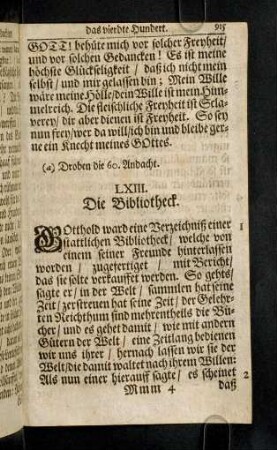 das vierdte Hundert. 915
GOTT! behüte mich vor solcher Freyheit/
und vor solchen Gedancken! Es ist meine
höchste Glückseligkeit / daß ich nicht mein
selbst/ und mir gelassen bin; Mein Wille
wäre meine Hölle/dein Wille ist mein Him-
melreich. Die fleischliche Freyheit ist Scla-
verey/ dir aber dienen ist Freyheit. So sey
nun frey/wer da will/ich bin und bleibe ger-
ne ein Knecht meines GOttes.
(a) Droben die 60. Andacht.
LXIII.
Die Bibliotheck.
GOtthold ward eine Verzeichniß einer 1
stattlichen Bibliotheck/ welche von
einem seiner Freunde hinterlassen
worden / zugefertiget / mit Bericht/
das sie solte verkauffet werden. So gehts/
sagte er/ in der Welt/ sammlen hat seine
Zeit/ zerstreuen hat seine Zeit/ der Gelehr-
ten Reichthum sind mehrentheils die Bü-
cher/ und es gehet damit/ wie mit andern
Gütern der Welt / eine Zeitlang bedienen
wir uns ihrer / hernach lassen wir sie der
Welt/die damit waltet nach ihrem Willen:
Als nun einer hierauff sagte/ es scheinet 2
Mmm 4 daß